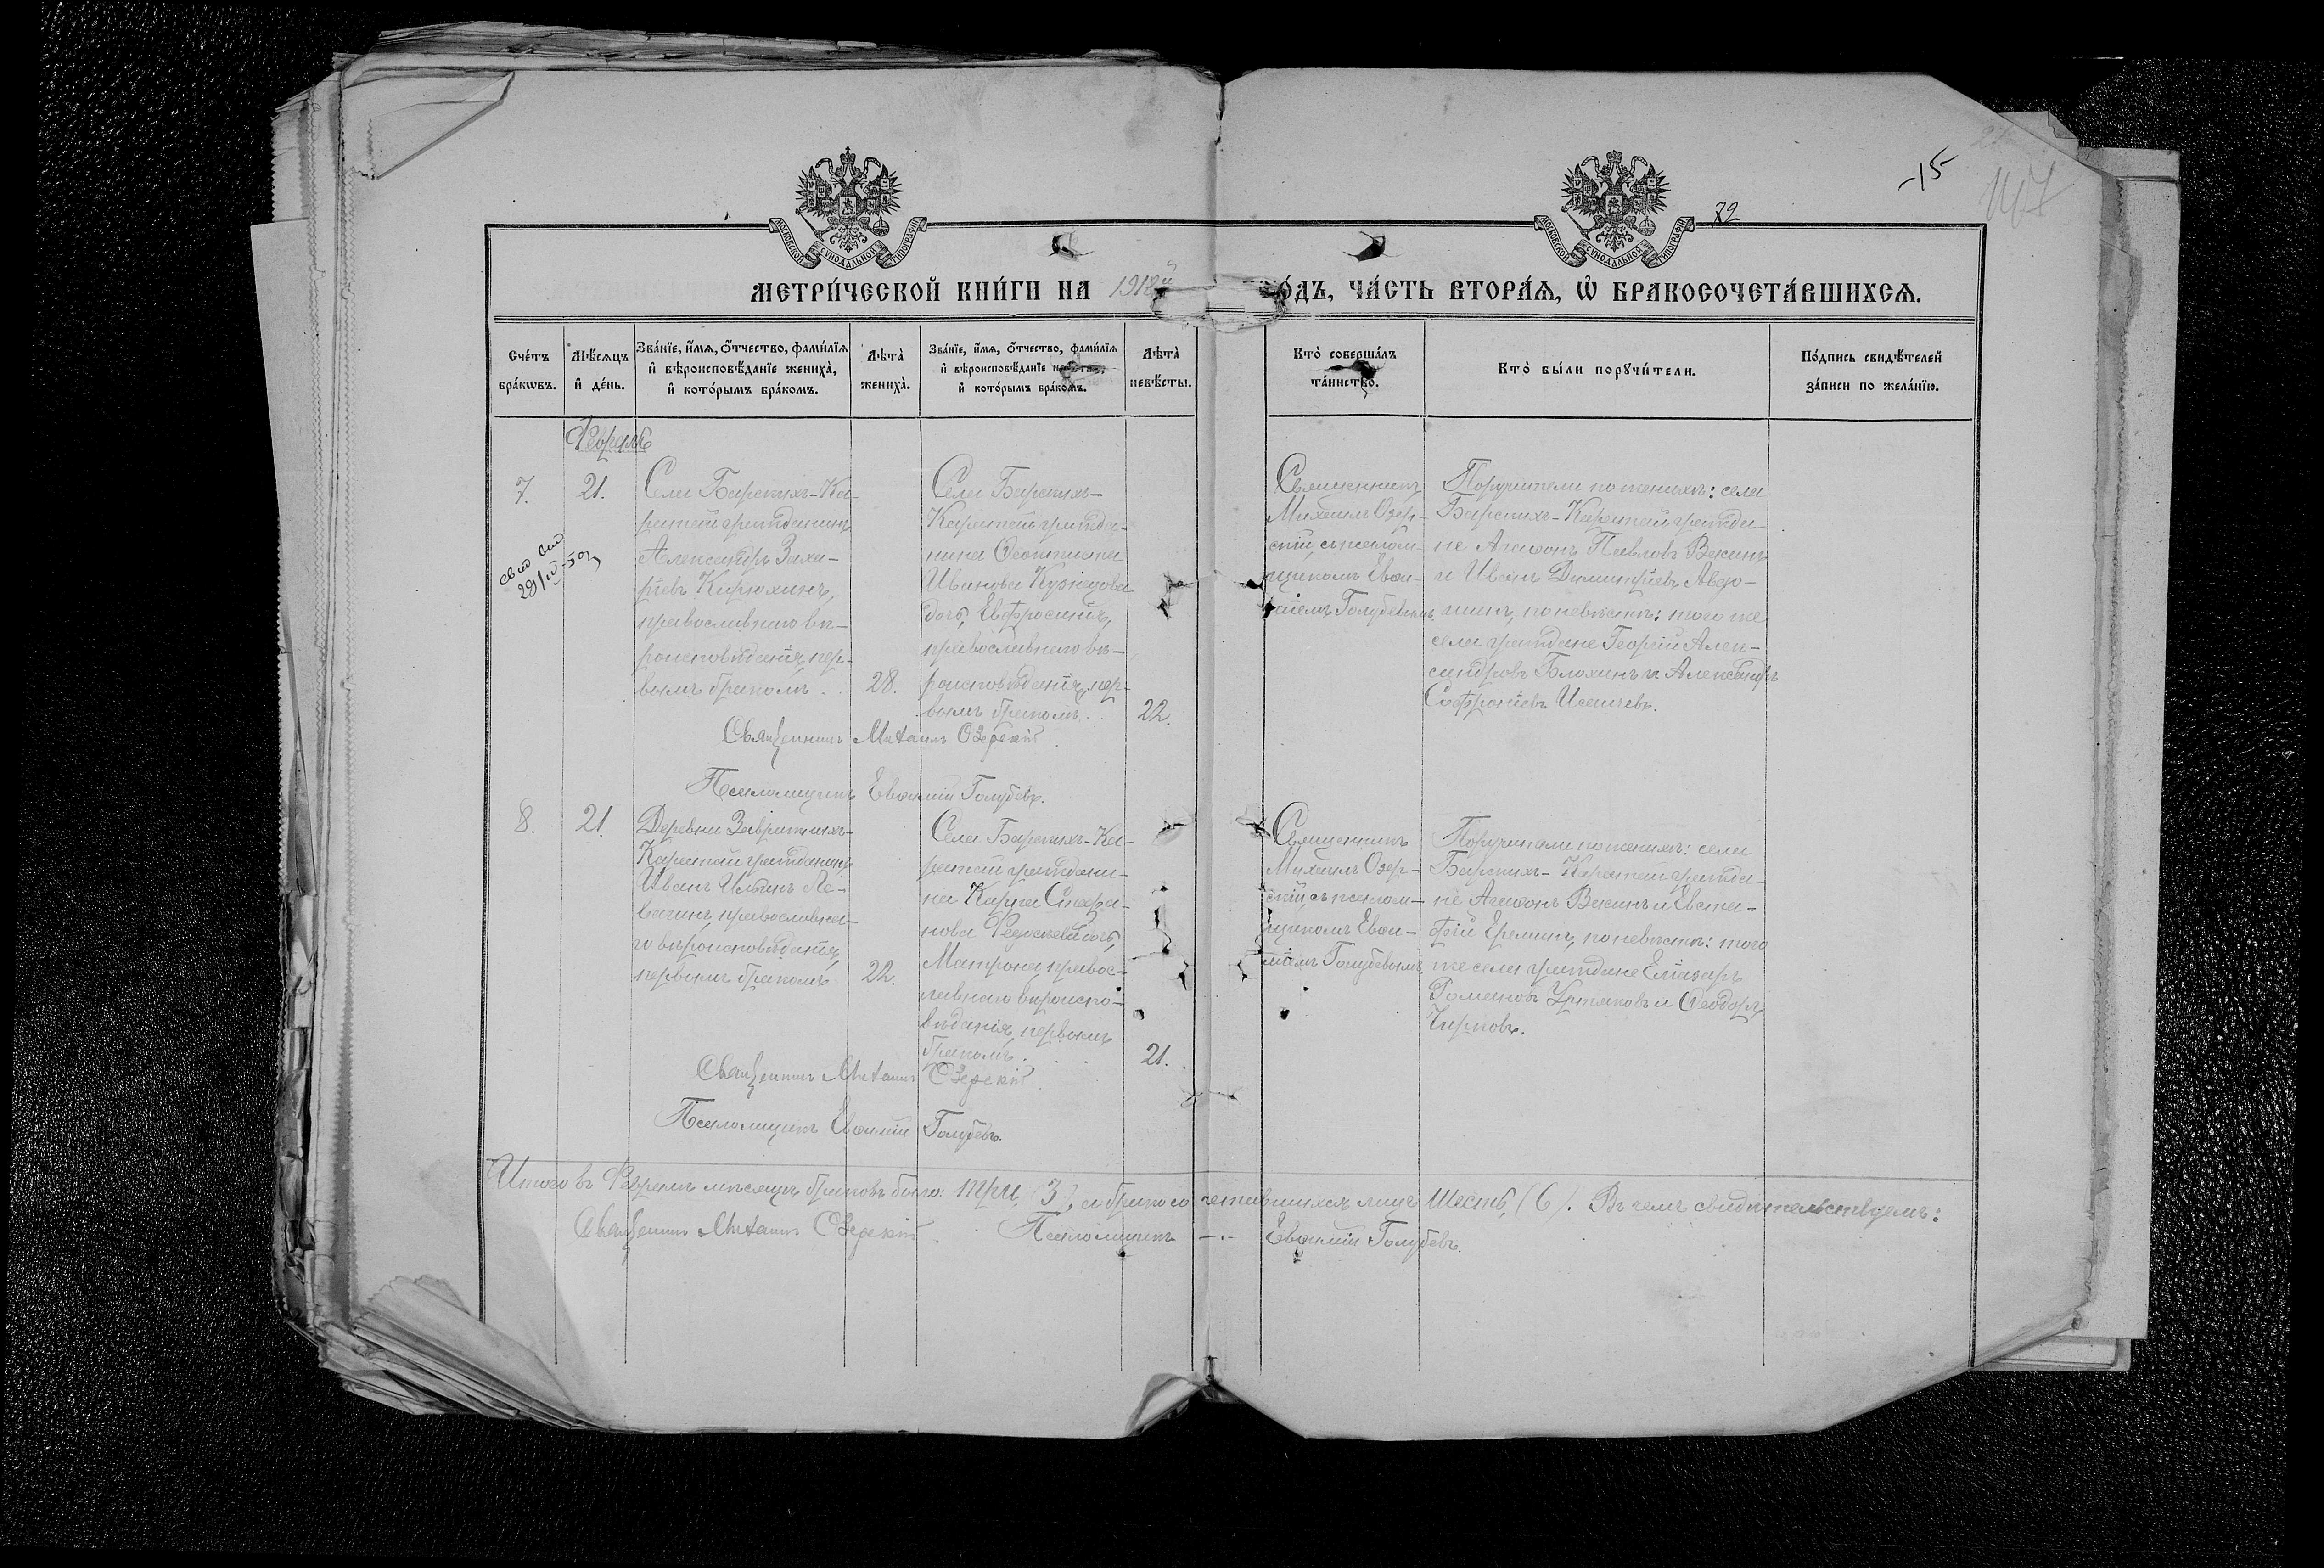 -15
147
72
МОСКОВСКОЙ СѴНОДАЛЬНОЙ ТИПОГРАФІИ
МОСКОВСКОЙ СѴНОДАЛЬНОЙ ТИПОГРАФІИ
МЕТРИ́ЧЕСКОЙ КНИ́ГИ НА 1918й
О́ДЪ, ЧА́СТЬ ВТОРА́Я, Ѡ҆ БРАКОСОЧЕТА́ВШИХСЯ.
Сче́тъ бра́кѡвъ.
Мѣ́сяцъ и҆ де́нь.
Зва́нїе, и҆́мя, ѻ҆́тчество, фами́лїя и҆ вѣроисповѣ́данїе жениха̀, и҆ кото́рымъ бра́комъ.
Лѣта̀ жениха̀.
Зва́нїе, и҆́мя, ѻ҆́тчество, фами́лїя и҆ вѣроисповѣ́данїе и҆ кото́рымъ бра́комъ.
Лѣта̀ невѣ́сты.
Кто̀ соверша́лъ та́инство.
Кто̀ бы́ли порꙋчи́тели.
По́дпись свидѣ́телей за́писи по жела́нїю.
Февраль
7.
21.
28/IV-50
Села Барскихъ-Ка-
ратай гражданинъ
Александръ Заха-
ріевъ Кирюхинъ,
православнаго вѣ-
роисповѣданія, пер-
вымъ бракомъ.
28.
Села Барскихъ-
Каратай гражда-
нина Феоктиста
Иванова Кузнецова
дочь, Евфросинія,
православнаго вѣ-
роисповѣданія, пер-
вымъ бракомъ.
22.
Священникъ
Михаилъ Озер-
скій съ псалом-
щикомъ Евѳи-
міемъ Голубевымъ.
Поручители по женихѣ: села
Барскихъ-Каратай гражда-
не Агаѳонъ Павловъ Векинъ
и Иванъ Димитріевъ Авдо-
нинъ, по невѣстѣ: того же
села граждане Георгій Алек-
сандровъ Блохинъ и Александръ
Софроніевъ Исаичевъ.
Священникъ Михаилъ Озерскій
Псаломщикъ Евѳимій Голубевъ.
8.
21.
Деревни Завражныхъ-
Каратай гражданинъ
Иванъ Ильинъ Ле-
вагинъ, православна-
го вѣроисповѣданія,
первымъ бракомъ
22.
Села Барскихъ-Ка-
ратай граждани-
на Карпа Стефа-
нова дочь,
Матрона, правос-
лавнаго вѣроиспо-
вѣданія, первымъ
бракомъ.
21.
Священникъ
Михаилъ Озер-
скій съ псалом-
щикомъ Евѳи-
міемъ Голубевымъ
Поручители по женихѣ: села
Барскихъ-Каратай гражда-
не Агаѳонъ Векинъ и Евста-
фій Ереминъ, по невѣстѣ: того
же села граждане Еліазаръ
Романовъ и Ѳеодоръ
Чирковъ.
Священникъ Михаилъ Озерскій
Псаломщикъ Евѳимій Голубевъ.
Итого въ Февралѣ мѣсяцѣ браковъ было: три, (3), а бракосочетавшихся лицъ шесть, (6). Въ чемъ свидѣтельствуемъ:
Священникъ Михаилъ Озерскій. Псаломщикъ -.- Евѳимій Голубевъ.